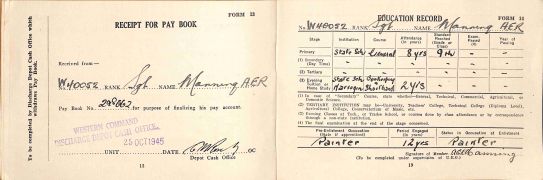 FORM 13
RECEIPT FOR PAY BOOK
To be completed by Discharge Depot Cash Office which withdraws Pay Book.
Received from—
No. W40052 RANK Sgt. NAME Manning A.E.R
Pay Book No. for purpose of finalizing his pay account.
WESTERN COMMAND
DISCHARGE DEPOT CASH OFFICE
25 OCT 1945
UNIT DATE OC
Depot Cash Office
18
FORM 14
EDUCATION RECORD
No. W40052 RANK Sgt. NAME Manning AER
Stage Institution Course Attendance (in years) Standard Reached (Grade or Class) Exam. Passed (4) Year of Passing
Primary State Sch. General 8 yrs 9th
(1) Secondary (Day Time)
(2) Tertiary
(3) Evening Tuition or Home Study State Sch. 2 yrs
(1) In case of "Secondary" Course, state whether—General, Technical, Commercial, Agricultural, or Domestic Science.
(2) TERTIARY INSTITUTION may be:—University, Teachers' College, Technical College (Diploma Level), Agricultural College, Conservatorium of Music, etc.
(3) Evening Classes at Tech., or Trades School, or courses done by class attendance or by correspondence through a non-state institution.
(4) The final examination at the end of the stage concerned.
Pre-Enlistment Occupation (State if apprenticed) Period Engaged (In years) Status in Occupation at Enlistment
Painter 12 yrs Painter
Signature of Member AER Manning
(To be completed under supervision of U.E.O.)
19